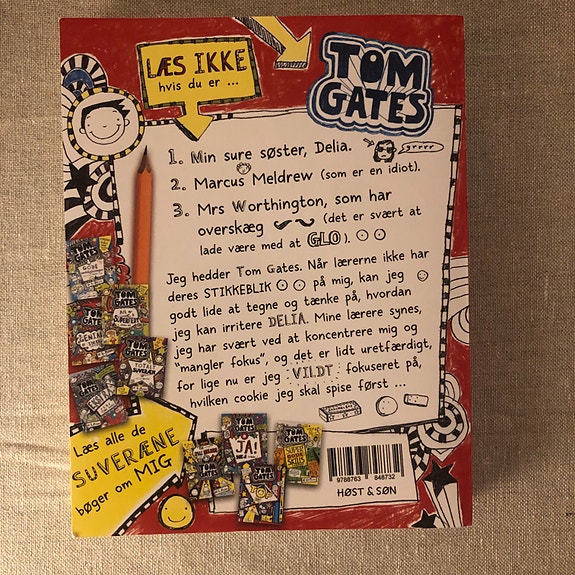 LÆS IKKE
hvis du er ...
TOM
GATES
1. Min sure søster, Delia.
grrrr
2. Marcus Meldrew (som er en idiot).
3. Mrs Worthington, som har
overskæg (det er svært at
lade være med at GLO).
Jeg hedder Tom Gates. Når lærerne ikke har
deres STIKKEBLIK på mig, kan jeg
godt lide at tegne og tænke på, hvordan
jeg kan irritere DELIA. Mine lærere synes,
jeg har svært ved at koncentrere mig og
"mangler fokus", og det er lidt uretfærdigt,
for lige nu er jeg VILDT fokuseret på,
hvilken cookie jeg skal spise først ...
Læs alle de
SUVERÆNE
bøger om MIG
TOM
GATES
TOM
GATES
TOM
GATES
TOM
GATES
JA!
TOM
GATES
TOM
GATES
9788763 848732
HØST & SØN